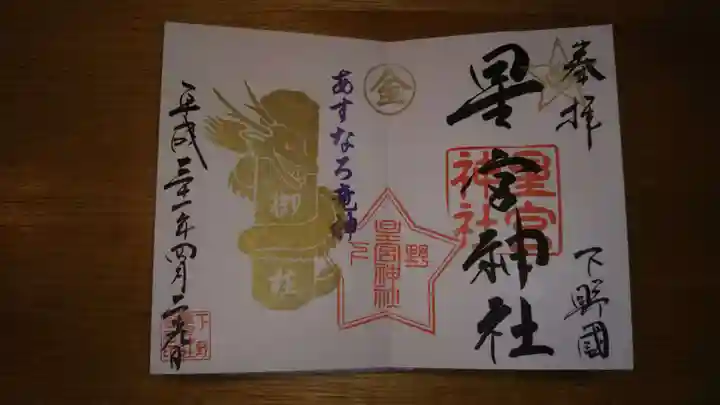 奉拝
下野國
星宮神社
星宮
神社
金
あすなろ竜神
下野
星宮神社
御柱
平成三十一年四月二十九日
下野